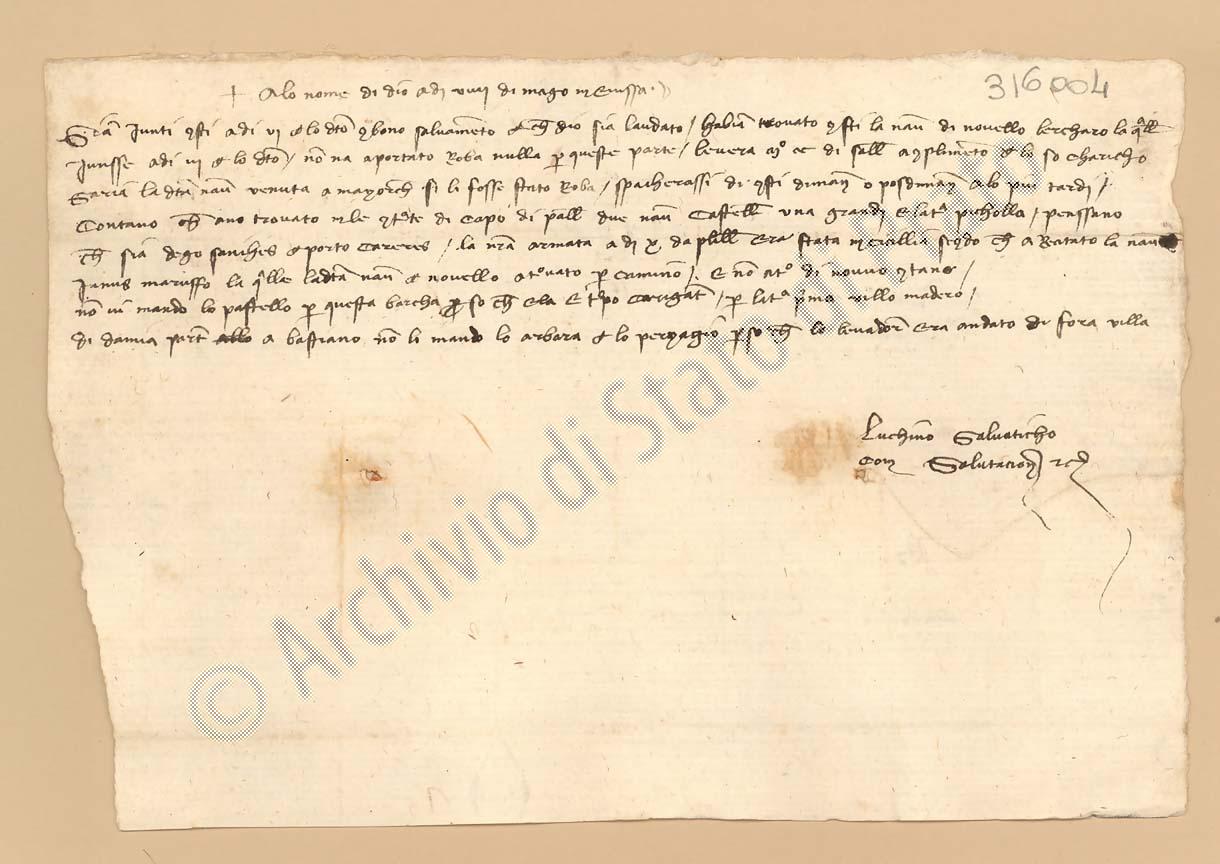 316004
+ Alo nome di dio adi viiij di mago in Evissa
Siã Junti qsti adi vi de lo dto q bono salvameto de ch dio sia laudato / habiã trovato qsti la nau di novello lercharo la qll
Junsse adi iij de lo dto / nõ na aportato Roba nulla p queste parte / levera mº cc di sall a qplimeto de lo so charicho
Sariã la dta nau venuta a mayorch si li fosse stato Roba / spacherassi di qsti dimañ o posdimañ alo piu tardi /
Contano ch ano trovato in le di Capo di pall due nau Castell una grandi e latª picholla / penssano
ch sia dego sanches de porto Careris / la nrã armata adi x da pall era stata in Cicillia ch a Rcatato la nau
Janus marusso la qlle la dta nau de novello a tºvato p camino / E nõ di novvo
nõ vi mando lo pastello p questa barcha p so ch ela E tpo / p latª pma villo madero /
di damia part allo a bastiano nõ li mando lo arbara de lo p so ch lo levador era andato di fora villa
Luchino Salvaticho
Com Salutacion
© Archivio di Stato di